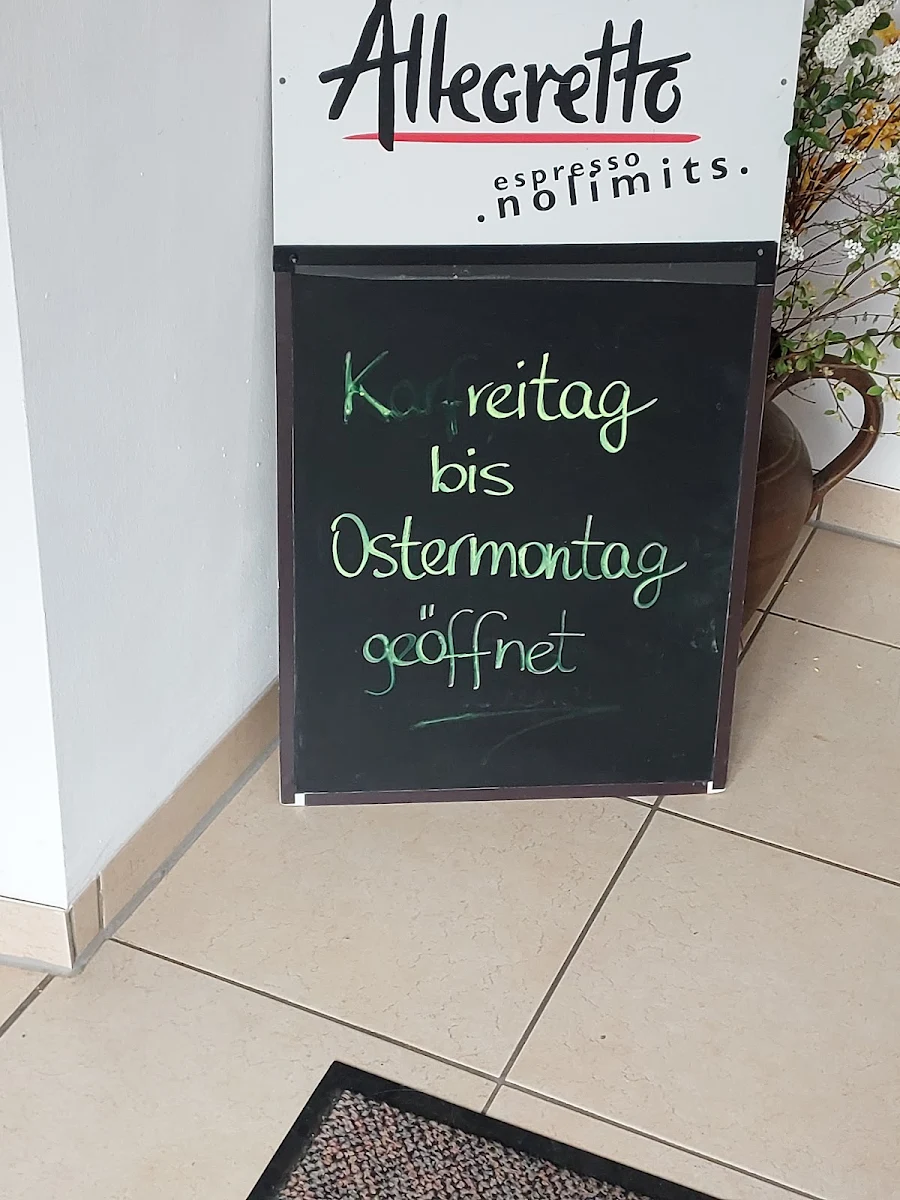 Allegretto
espresso
.nolimits.
Karfreitag
bis
Ostermontag
geöffnet